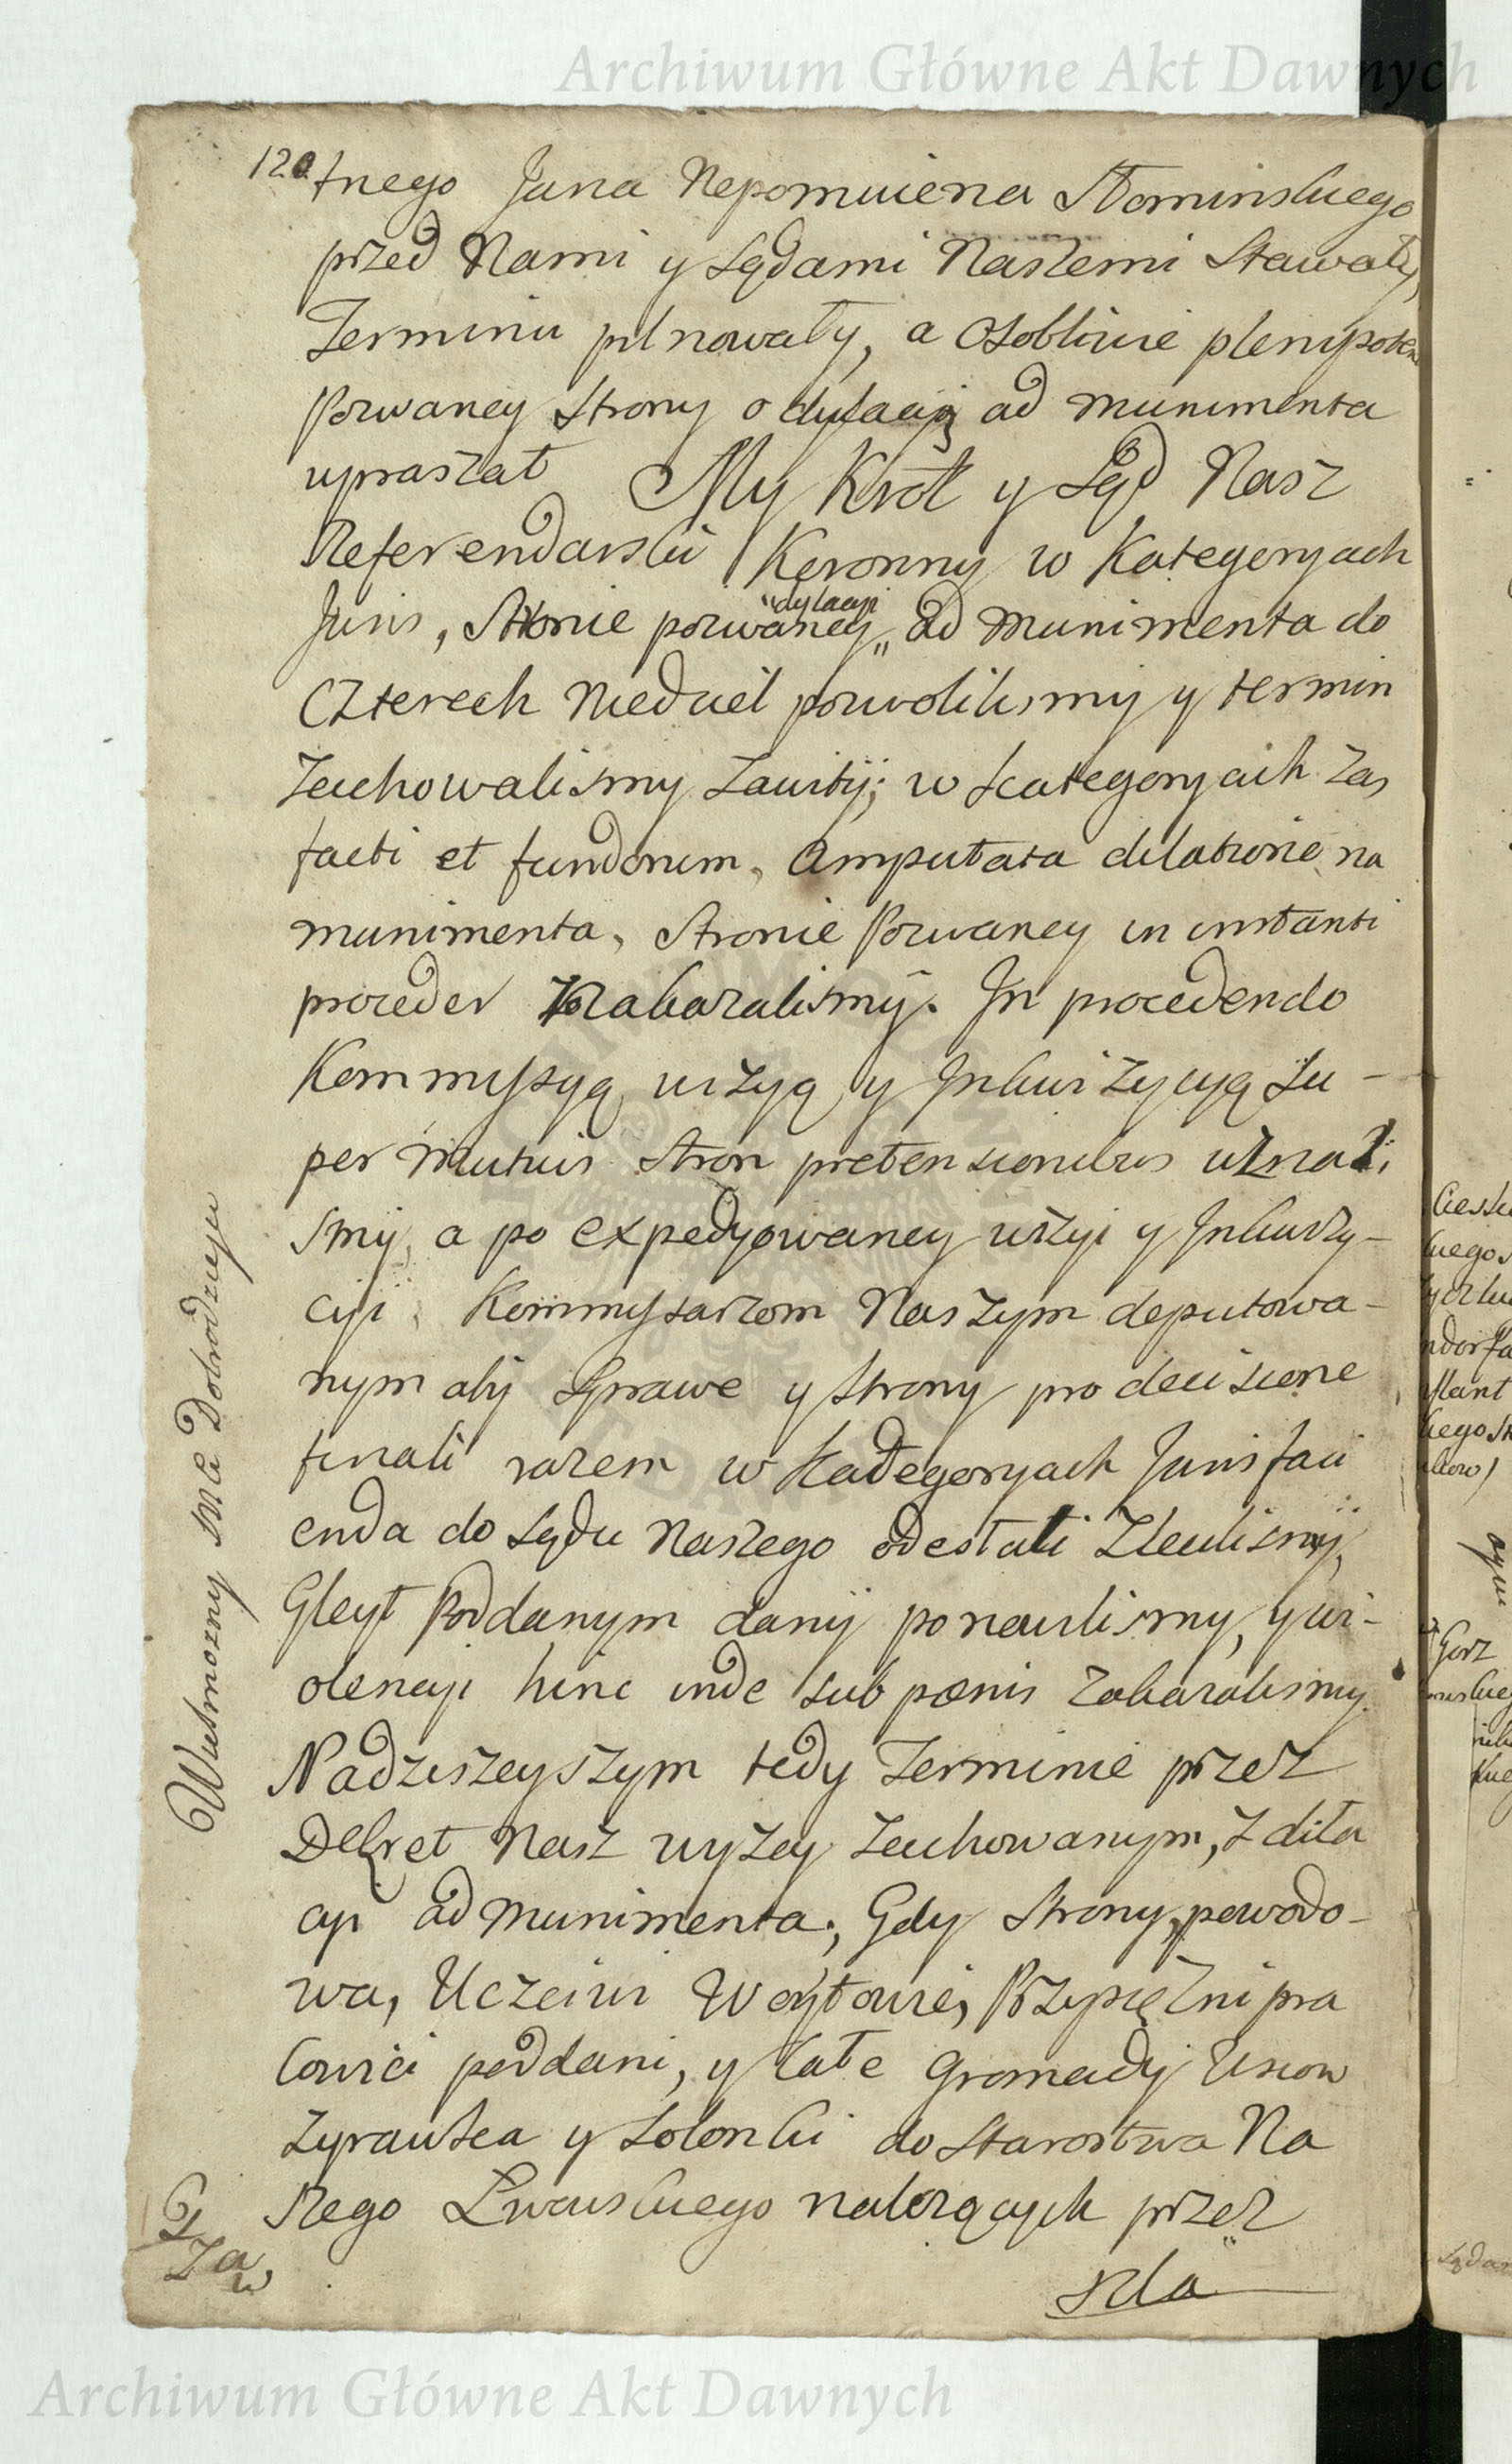 Archiwum Główne Akt Dawnych
120
tnego Jana Nepomucena Słominskiego
przed Nami y Sądami Naszemi Stawały,
Terminu pilnowały, a osobliwie plenipoten
Pozwaney Strony o dylacyą ad munimenta
upraszał My Król y Sąd Nasz
Referendarski Koronny w Kategoryach
Juris, Stronie pozwaney „dylacyi„ ad munimenta do
Czterech Niedziel pozwolilismy y termin
zachowalismy zawity; w kategoryach zas
facti et fundorum, amputata dilatione na
munimenta, Stronie Pozwaney in instanti
proceder nakazalismy. In procedendo
Kommyssyą wizyą y Inkwizycyą Su-
per mutuis Stron pretensionibus uznali
smy, a po expedyowaney wizyi y Inkwizy-
cyi Kommyssarzom Naszym deputowa-
nym aby Sprawe y Strony pro decisione
finali razem w Kategoryach Juris faci
enda do Sądu Naszego odesłali Zlecilismy,
Gleyt Poddanym dany ponowilismy, y wi-
olencyi hinc inde sub pœnis zakazalismy.
Nadzisieyszym tedy Terminie przez
Dekret Nasz wyzey zachowanym, z dila
cyi ad munimenta; Gdy Strony, powodo-
wa, Uczciwi Woytowie, Przysiężni pra
cowici poddani, y całe Gromady Usiow
Zyrawka y Solonki do Starostwa Na
szego Lwowskiego należących przez
szła
Wielmozny Dobrodzieju
Archiwum Główne Akt Dawnych